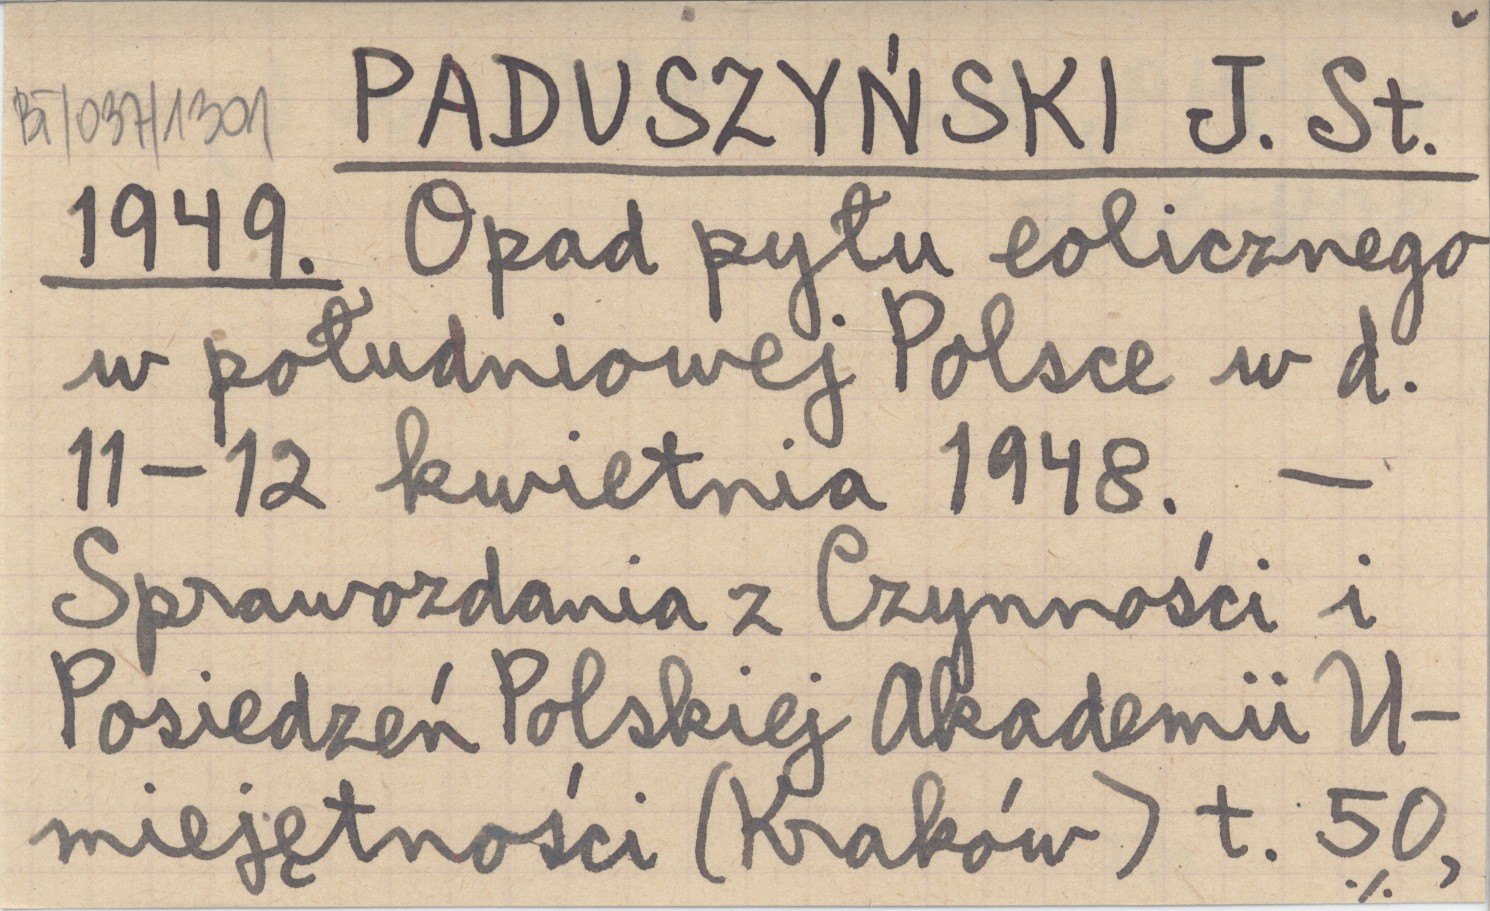 PADUSZYŃSKI J. St.
BT/037/1301
1949. Opad pyłu eolicznego
w południowej Polsce w d.
11-12 kwietnia 1948. —
Sprawozdania z Czynności i
Posiedzeń Polskiej Akademii U-
miejętności (Kraków) t. 50,
./.